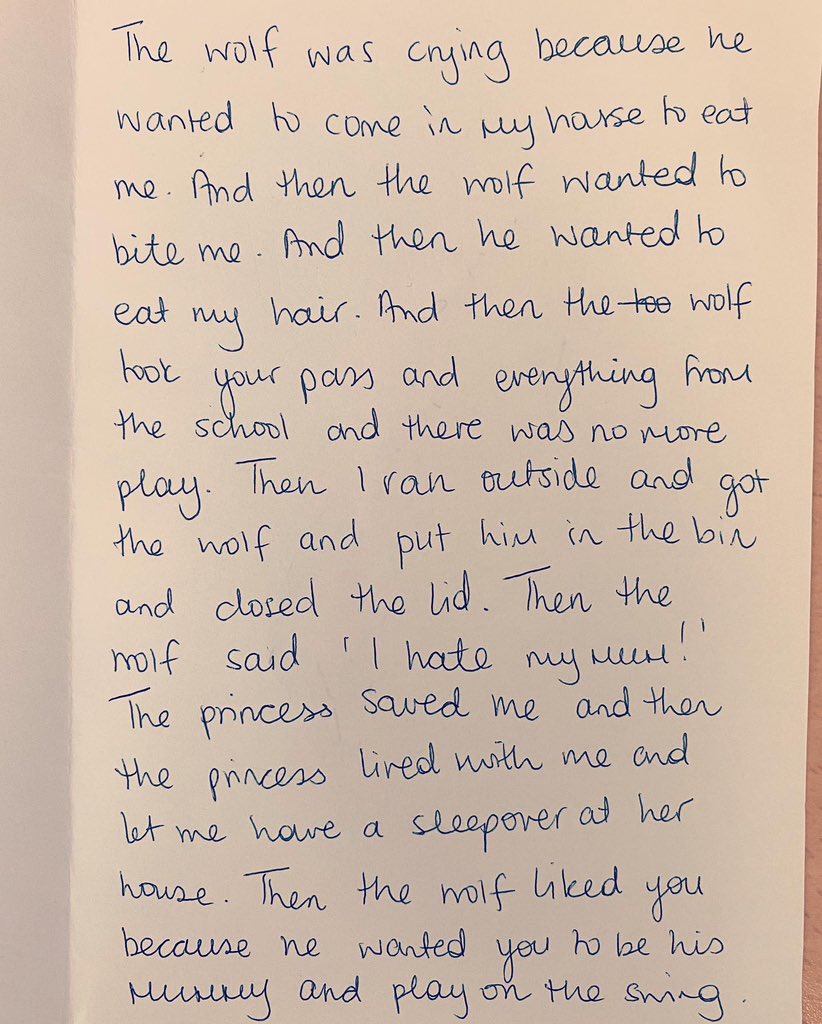 The wolf was crying because he
wanted to come in my house to eat
me. And then the wolf wanted to
bite me. And then he wanted to
eat my hair. And then the too wolf
took your pass and everything from
the school and there was no more
play. Then I ran outside and got
the wolf and put him in the bin
and closed the lid. Then the
wolf said 'I hate my mum!'
The princess saved me and then
the princess lived with me and
let me have a sleepover at her
house. Then the wolf liked you
because he wanted you to be his
mummy and play on the swing.